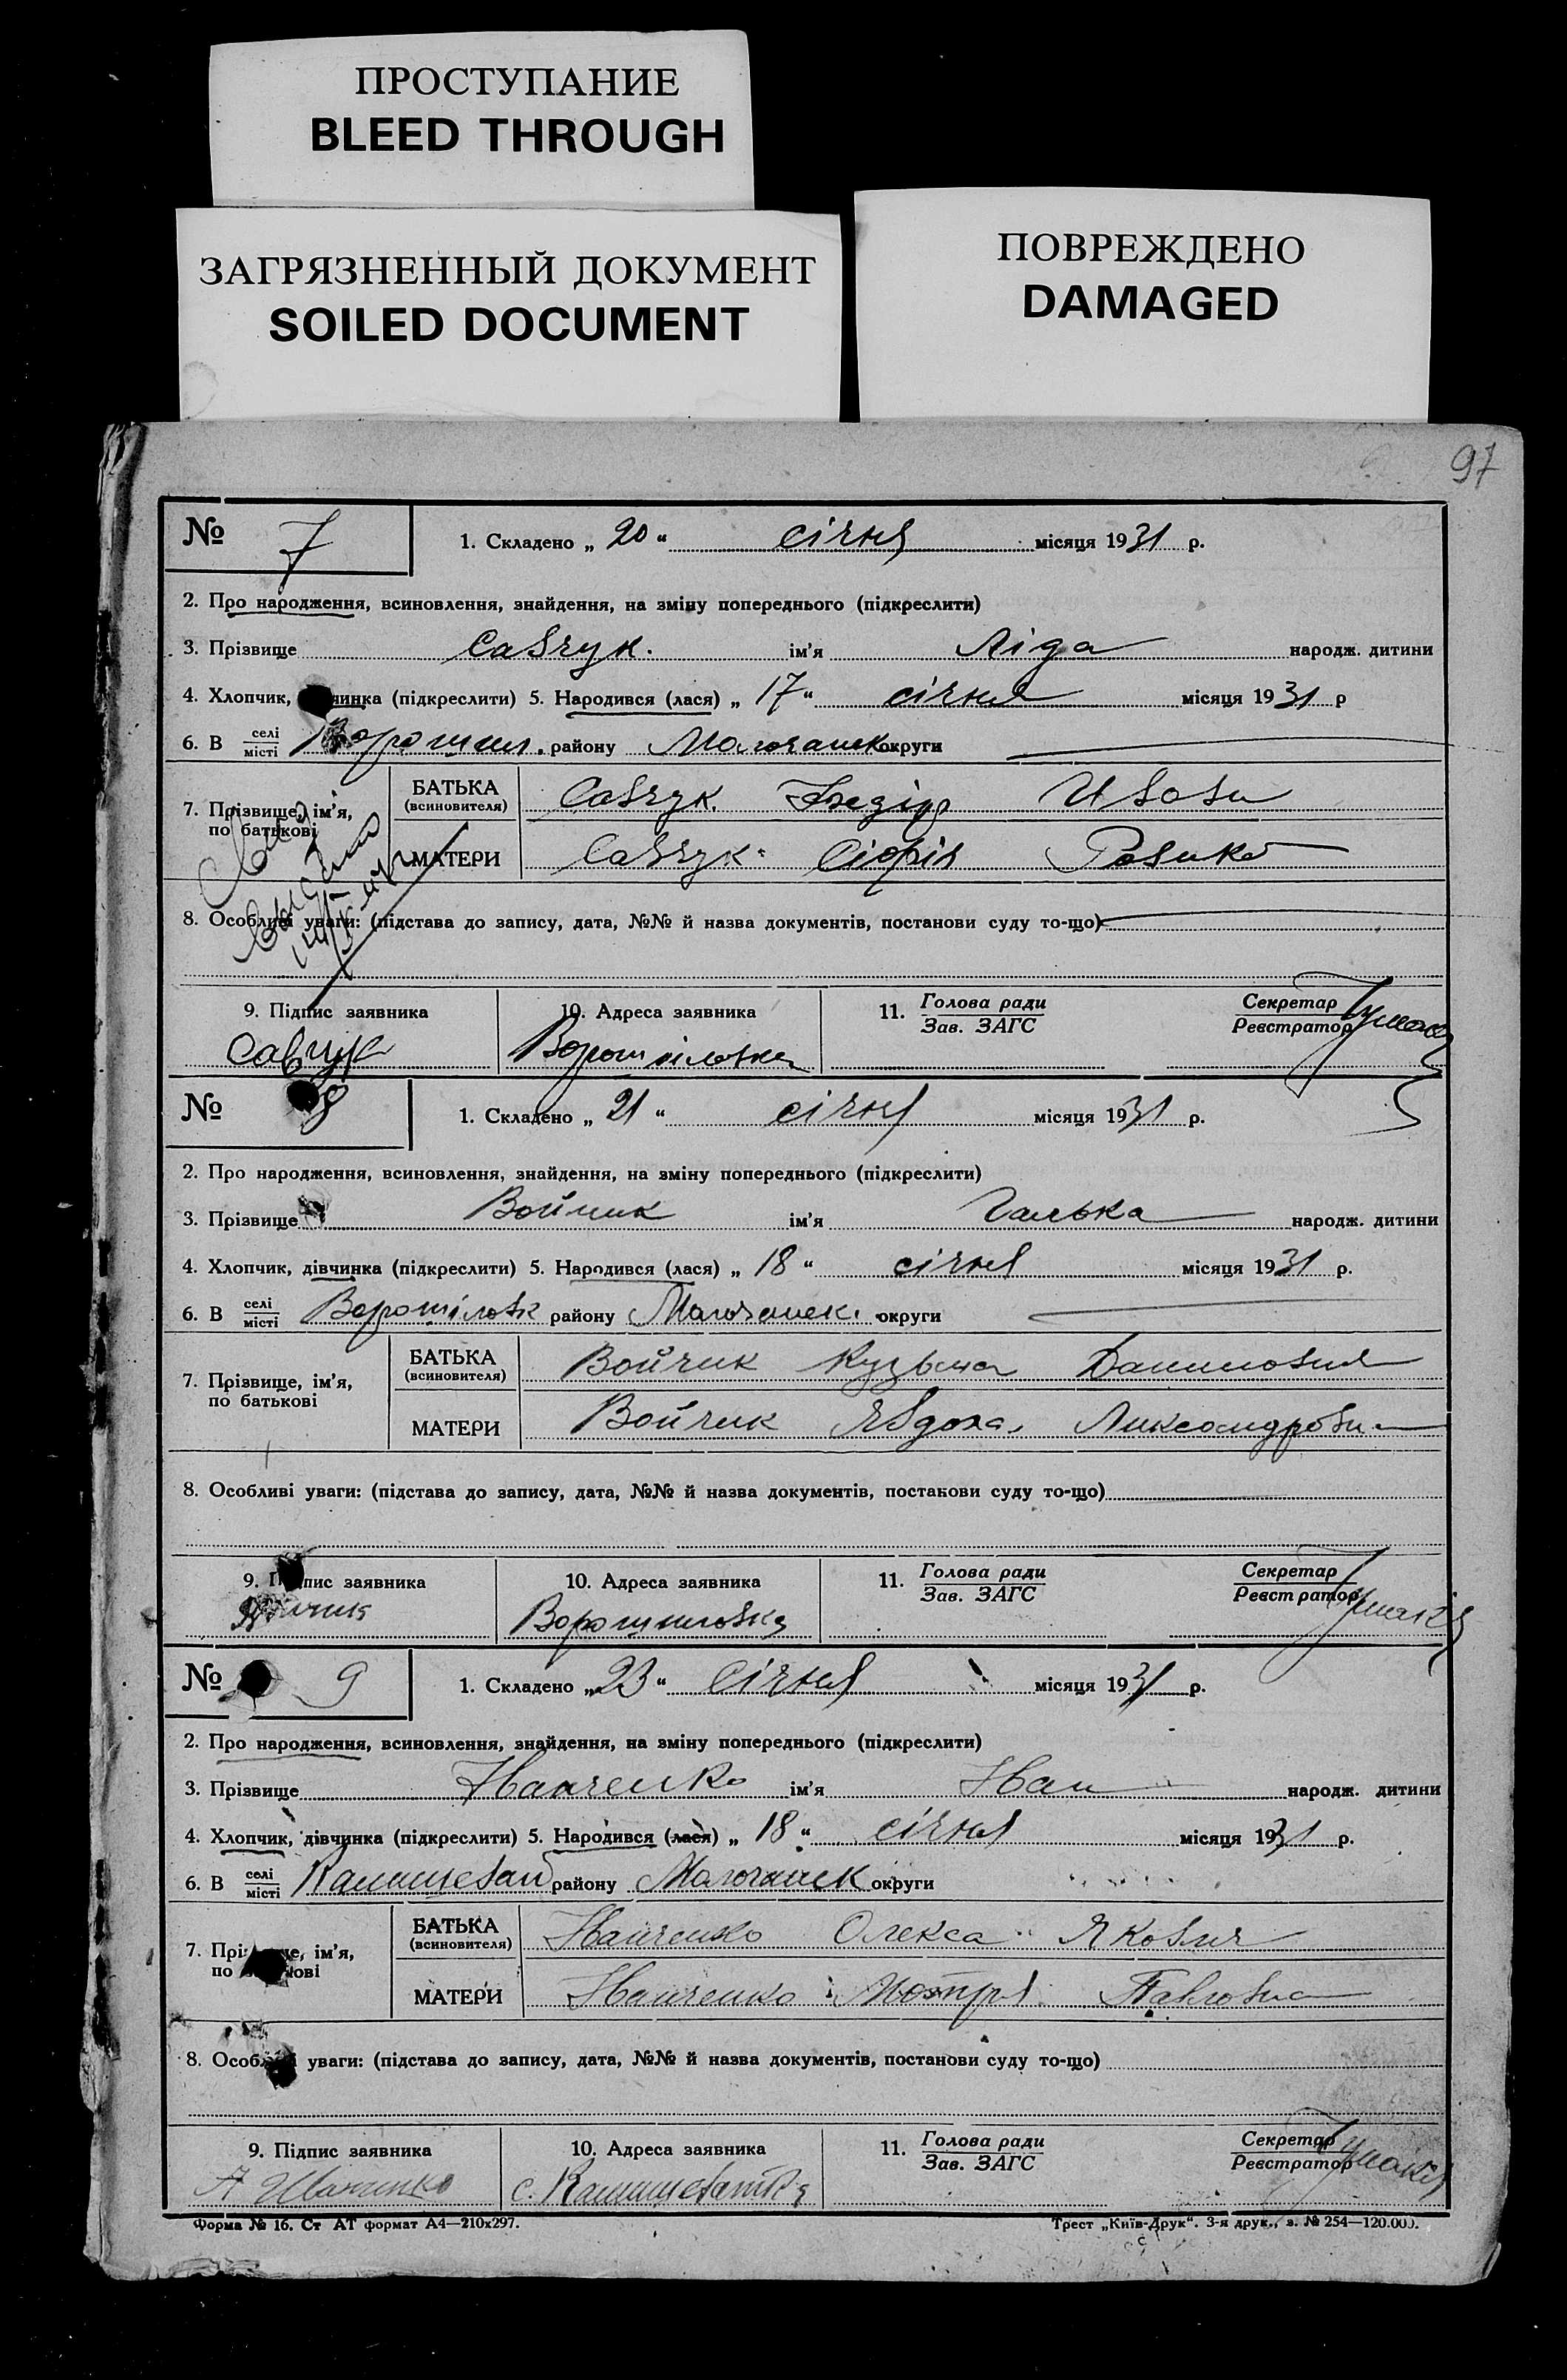 ПРОСТУПАНИЕ
BLEED THROUGH
ЗАГРЯЗНЕННЫЙ ДОКУМЕНТ
SOILED DOCUMENT
ПОВРЕЖДЕНО
DAMAGED
97
№ 7
1. Складено „ 20 “ січня місяця 1931 р.
2. Про народження, всиновлення, знайдення, на зміну попереднього (підкреслити)
3. Прізвище Савчук. ім'я Ліда народж. дитини
4. Хлопчик, чинка (підкреслити) 5. Народився (лася) „ 17 “ січня місяця 1931 р
6. В селі/місті Ворошил. району округи
7. Прізвище, ім'я, по батькові
БАТЬКА (всиновителя) Савчук. Федір
МАТЕРИ Савчук
8. Особливі уваги: (підстава до запису, дата, №№ й назва документів, постанови суду то-що)
9. Підпис заявника
10. Адреса заявника
11. Голова ради / Зав. ЗАГС
Секретар / Реєстратор
Савчук
Ворошиловка
№ 8
1. Складено „ 21 “ січня місяця 1931 р.
2. Про народження, всиновлення, знайдення, на зміну попереднього (підкреслити)
3. Прізвище Войчик ім'я Галька народж. дитини
4. Хлопчик, дівчинка (підкреслити) 5. Народився (лася) „ 18 “ січня місяця 1931 р.
6. В селі/місті Ворошіловк району округи
7. Прізвище, ім'я, по батькові
БАТЬКА (всиновителя) Войчик Кузьма Данилович
МАТЕРИ Войчик Явдоха
8. Особливі уваги: (підстава до запису, дата, №№ й назва документів, постанови суду то-що)
9. Підпис заявника
10. Адреса заявника
11. Голова ради / Зав. ЗАГС
Секретар / Реєстратор
Ворошиловка
№ 9
1. Складено „ 23 “ січня місяця 1931 р.
2. Про народження, всиновлення, знайдення, на зміну попереднього (підкреслити)
3. Прізвище Іванченко ім'я Іван народж. дитини
4. Хлопчик, дівчинка (підкреслити) 5. Народився (лася) „ 18 “ січня місяця 1931 р.
6. В селі/місті району округи
7. ім'я, по
БАТЬКА (всиновителя) Іванченко Олекса Якович
МАТЕРИ Іванченко Мотря Павловна
8. уваги: (підстава до запису, дата, №№ й назва документів, постанови суду то-що)
9. Підпис заявника
10. Адреса заявника
11. Голова ради / Зав. ЗАГС
Секретар / Реєстратор
Форма № 16. Ст АТ формат А4—210х297.
Трест „Київ-Друк“. 3-я друк., з. № 254—120.000.